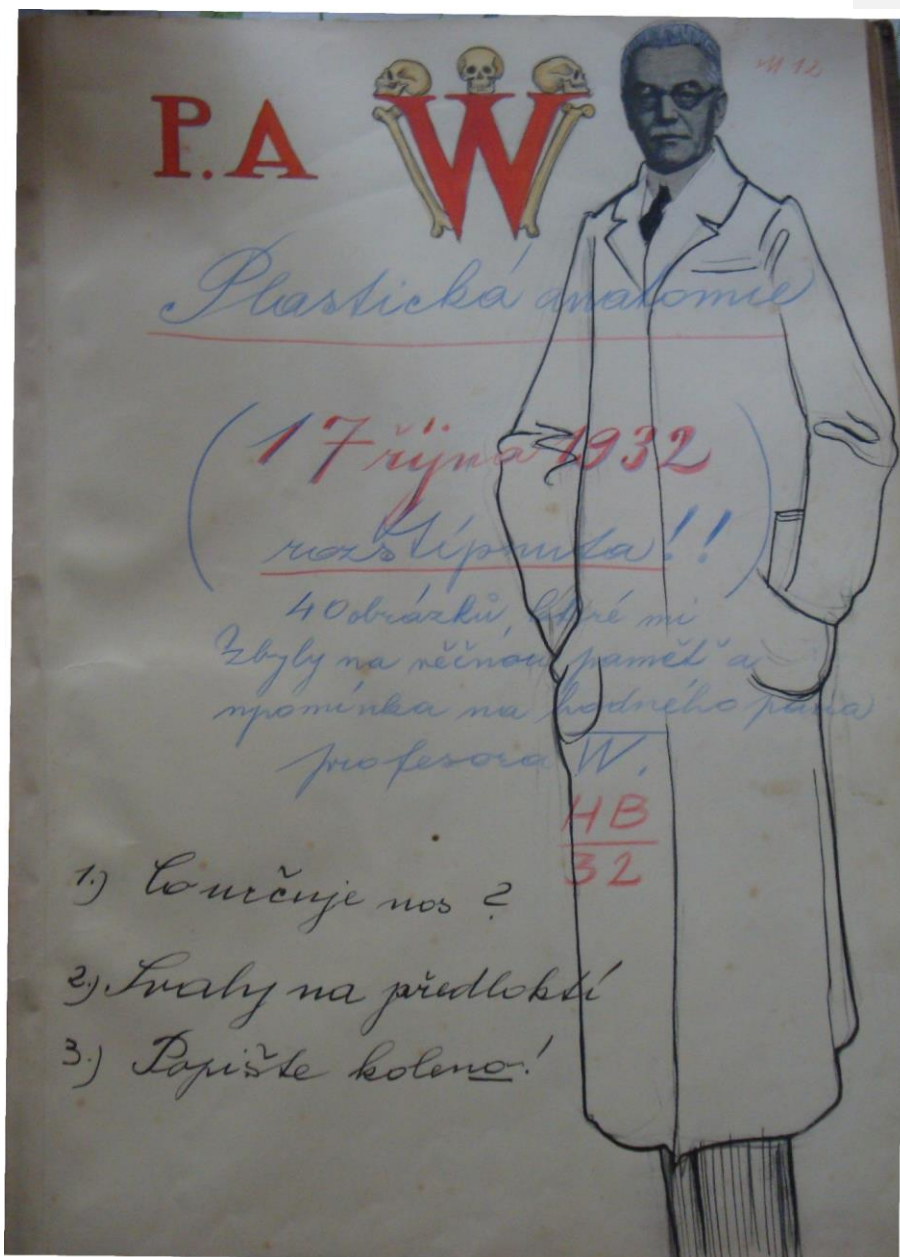 P. A W
Plastická anatomie
(17 října 1932
rozštípnuta!!)
40 obrázků, které mi
Zbyly na věčnou paměť a
vpomínka na hodného pána
profesora W.
HB
32
1.) Co určuje nos?
2.) Svaly na předloktí
3.) Popište koleno!